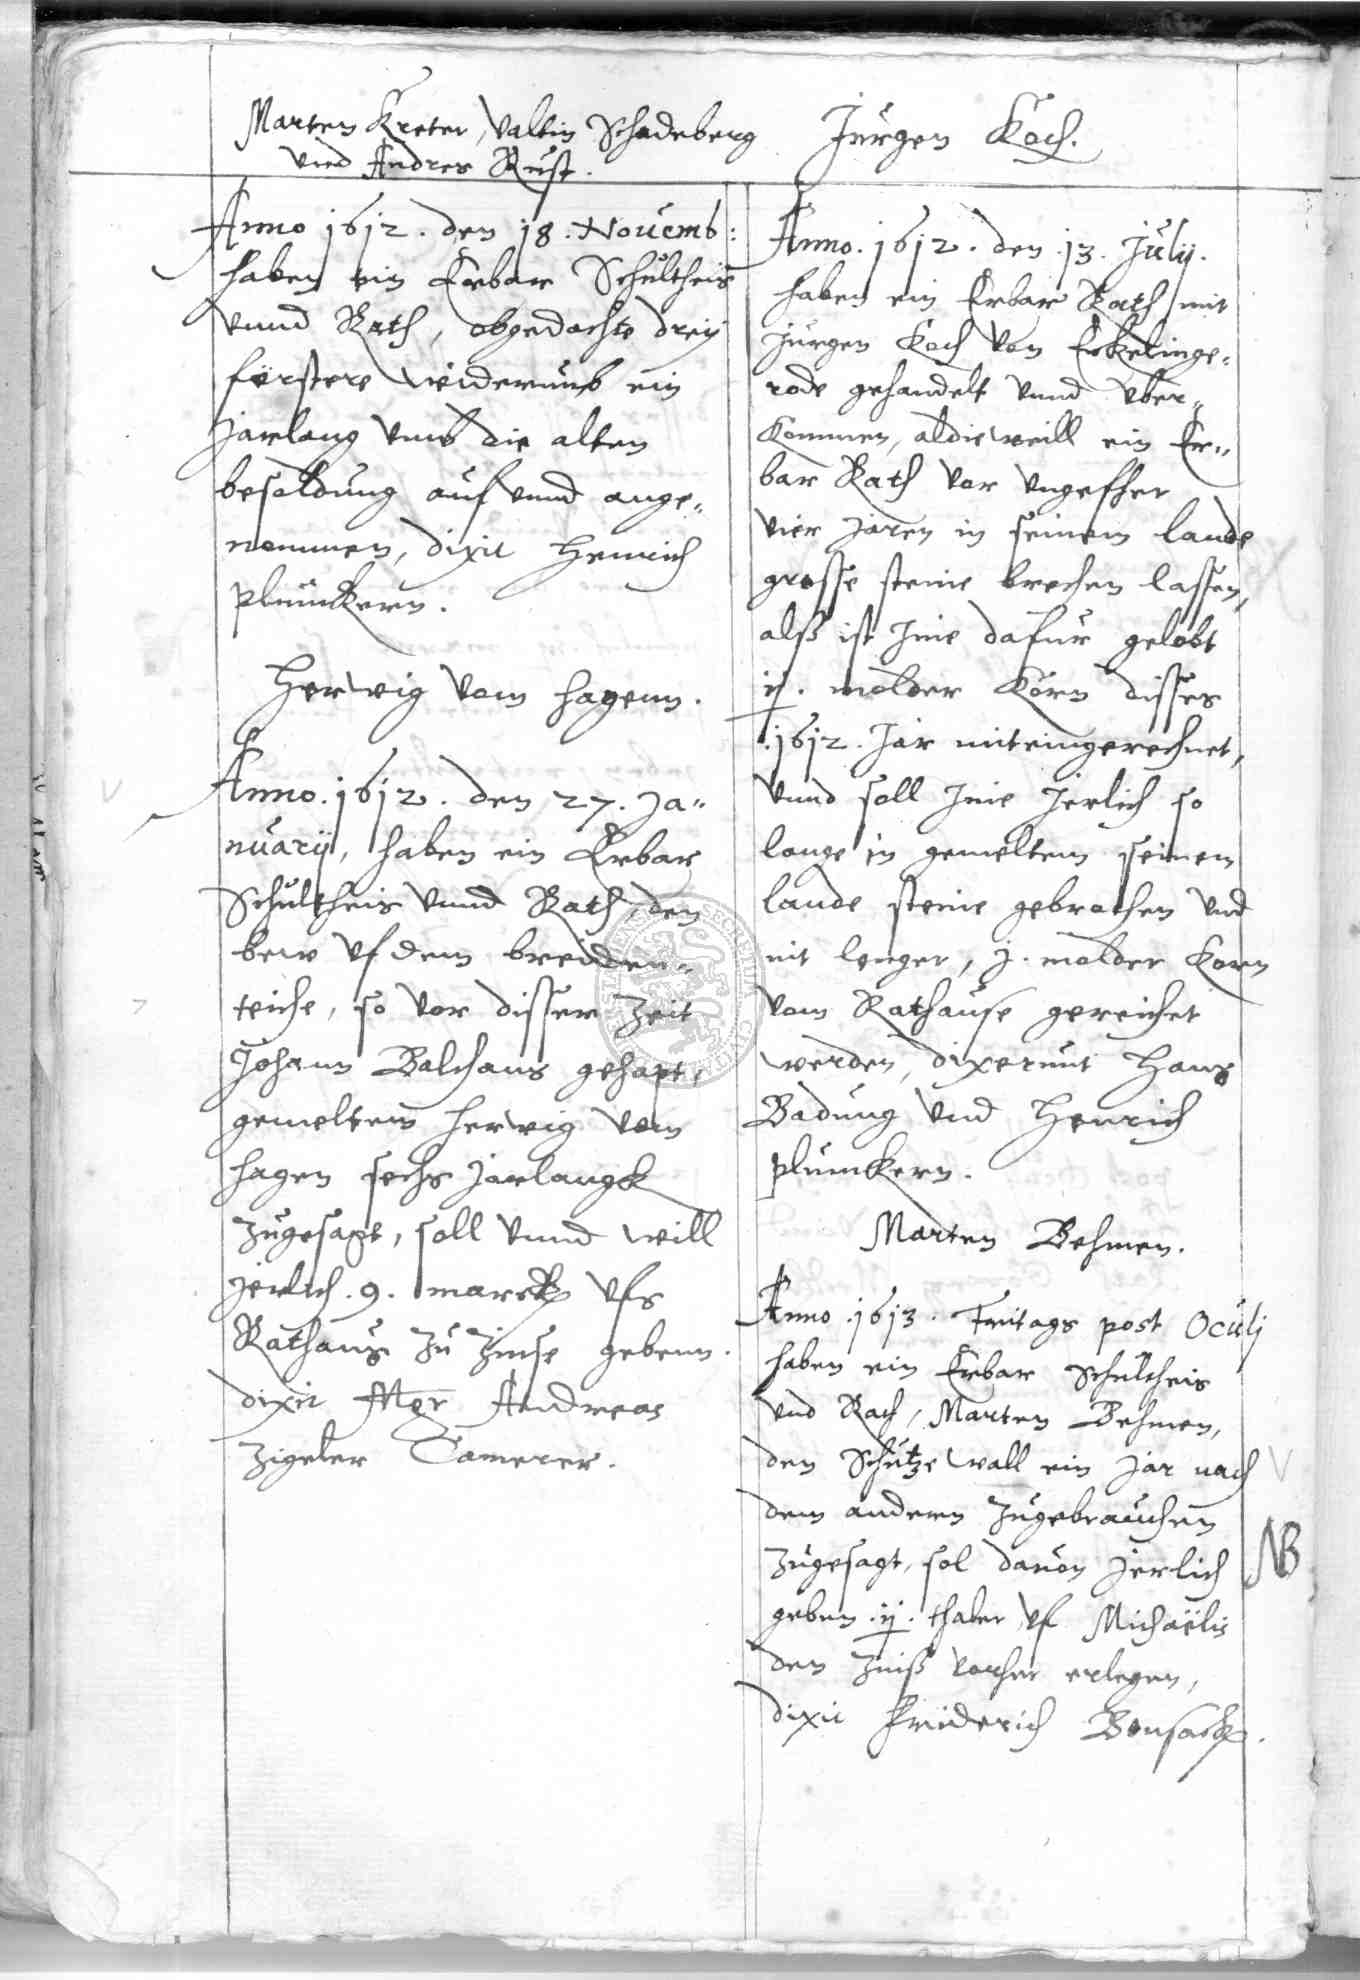 Marten Kreter, Valtin Schadeberg
vnd Andres Rust.
Anno 1612. den 18. Nouemb:
haben ein Erbar Schultheis
vnnd Rath, obgedachte dreÿ
förstere widerumb ein
Jarlang vmb die alten
besoldung auf vnnd ange„
nommen, dixit Henrich
Plumkern.
Herwig vom Hagenn.
Anno. 1612. den 27. Ja„
nuarij, haben ein Erbar
Schultheis vnnd Rath, den
vf dem breiden„
teiche, so vor disser Zeit
Johann Balthaus gehapt,
gemeltem Herwig vom
Hagen sechs Jarlangk
zugesagt, soll vnnd will
jerlich. 9. marck vfs
Rathaus zu Zinse gebenn.
dixit Mgr Andreas
Zigeler Camerer.
Jurgen Koch.
Anno. 1612. den 13. Julij.
haben ein Erbar Rath mit
Jurgen Koch von Erkelinge„
rode gehandelt vnnd vber„
kommen, aldieweill ein Er„
bar Rath vor vngefher
vier Jaren in seinem lande
grosse steine brechen lassen,
alß ist Jme dafur gelobt
ij. molder Korn disses
.1612. Jar miteingerechnet,
vnnd soll Jme Jerlich so
lange in gemeltem seinem
lande steine gebrochen vnd
nit lenger, j. molder Korn
vom Rathause gereichet
werden, dixerunt Hans
Badung vnd Henrich
Plumkern.
Marten Behmen.
Anno .1613. Freitags post Oculj
haben ein Erbar Schultheis
vnd Rath, Marten Behmen,
den Schutze wall ein Jar nach
dem andern zugebrauchen
zugesagt, sol dauon jerlich
NB
geben .ij. thaler vf Michaëlis
den Zinß vorher erlegen,
dixit Friderich Bonsack.